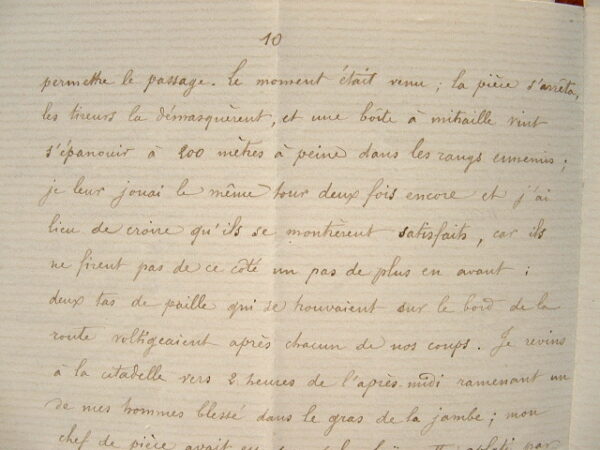 10
permettre le passage. Le moment était venu ; la pièce s'arrêta,
les tireurs la démasquèrent, et une boîte à mitraille vint
s'épanouir à 200 mètres à peine dans les rangs ennemis ;
je leur jouai le même tour deux fois encore et j'ai
lieu de croire qu'ils se montrèrent satisfaits, car ils
ne firent pas de ce côté un pas de plus en avant ;
deux tas de paille qui se trouvaient sur le bord de la
route voltigeaient après chacun de nos coups. Je revins
à la citadelle vers 2 heures de l'après-midi ramenant un
de mes hommes blessé dans le gras de la jambe ; mon
chef de pièce avait par